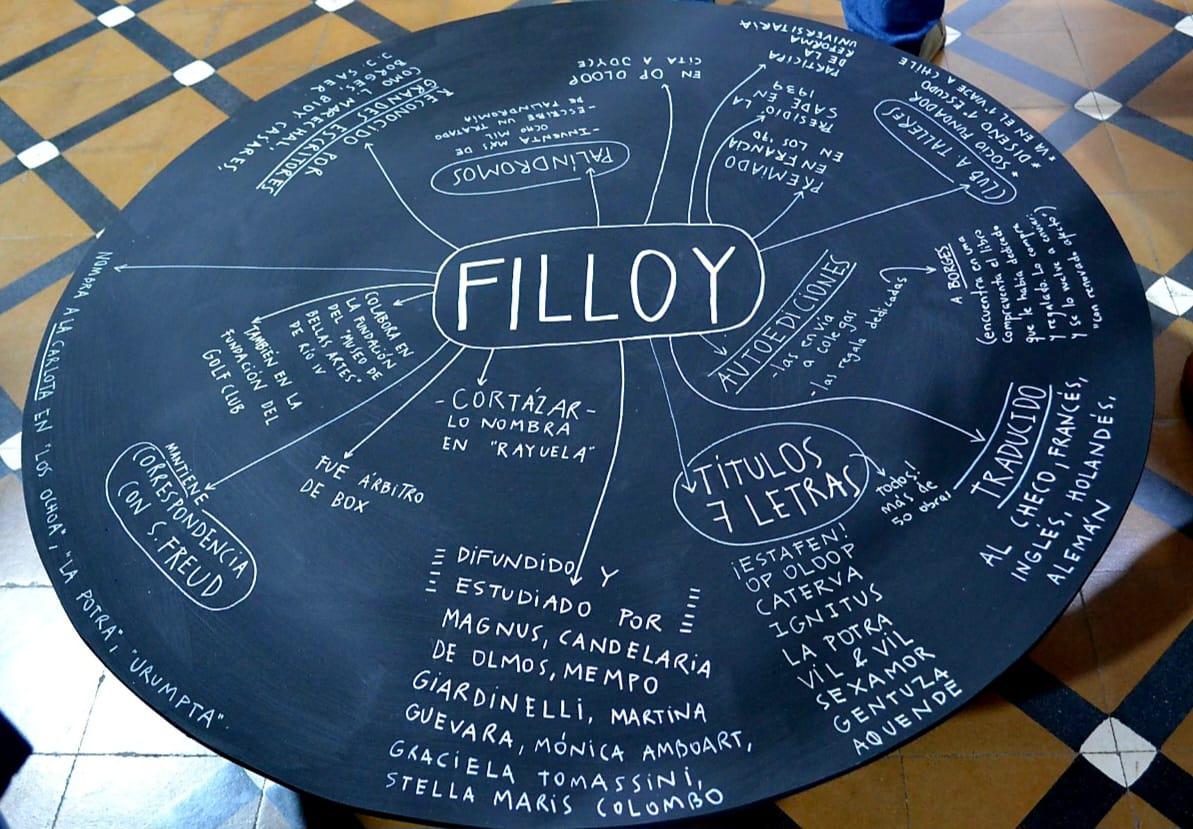 FILLOY
RECONOCIDO
POR
GRANDES ESCRITORES
COMO L. MARECHAL,
BORGES, BIOY CASARES,
J.J. SAER
PALÍNDROMOS
-INVENTA MÁS DE
OCHO MIL
-ESCRIBE UN TRATADO
DE PALINDROMÍA
EN OP OLOOP
CITA A JOYCE
PARTICIPA
DE LA
REFORMA
UNIVERSITARIA
PRESIDIO, LA
SADE EN
1939
PREMIADO
EN FRANCIA
EN LOS 90
CLUB A TALLERES
* SOCIO FUNDADOR
* DISEÑO 1º ESCUDO
* VA EN EL 1º VIAJE A CHILE
AUTOEDICIONES
-las envía
a colegas
-las regala dedicadas
A BORGES
(encuentra en una
compraventa el libro
que le había dedicado
y regalado. Lo compra
y se lo vuelve a enviar:
"con renovado afecto")
TRADUCIDO
AL CHECO, FRANCÉS,
INGLÉS, HOLANDÉS,
ALEMÁN
TÍTULOS
7 LETRAS
todos!
más de
50 obras
¡ESTAFEN!
OP OLOOP
CATERVA
IGNITUS
LA POTRA
VIL & VIL
SEXAMOR
GENTUZA
AQUENDE
DIFUNDIDO Y
ESTUDIADO POR
MAGNUS, CANDELARIA
DE OLMOS, MEMPO
GIARDINELLI, MARTINA
GUEVARA, MÓNICA AMBUART,
GRACIELA TOMASSINI,
STELLA MARIS COLOMBO
-CORTÁZAR-
LO NOMBRA
EN "RAYUELA"
FUE ÁRBITRO
DE BOX
MANTIENE
CORRESPONDENCIA
CON S. FREUD
COLABORA EN
LA FUNDACIÓN
DEL "MUSEO DE
BELLAS ARTES"
DE RÍO IV
TAMBIÉN EN LA
FUNDACIÓN DEL
GOLF CLUB
NOMBRA A LA CARLOTA EN "LOS OCHOA", "LA POTRA", "URUMPTA".